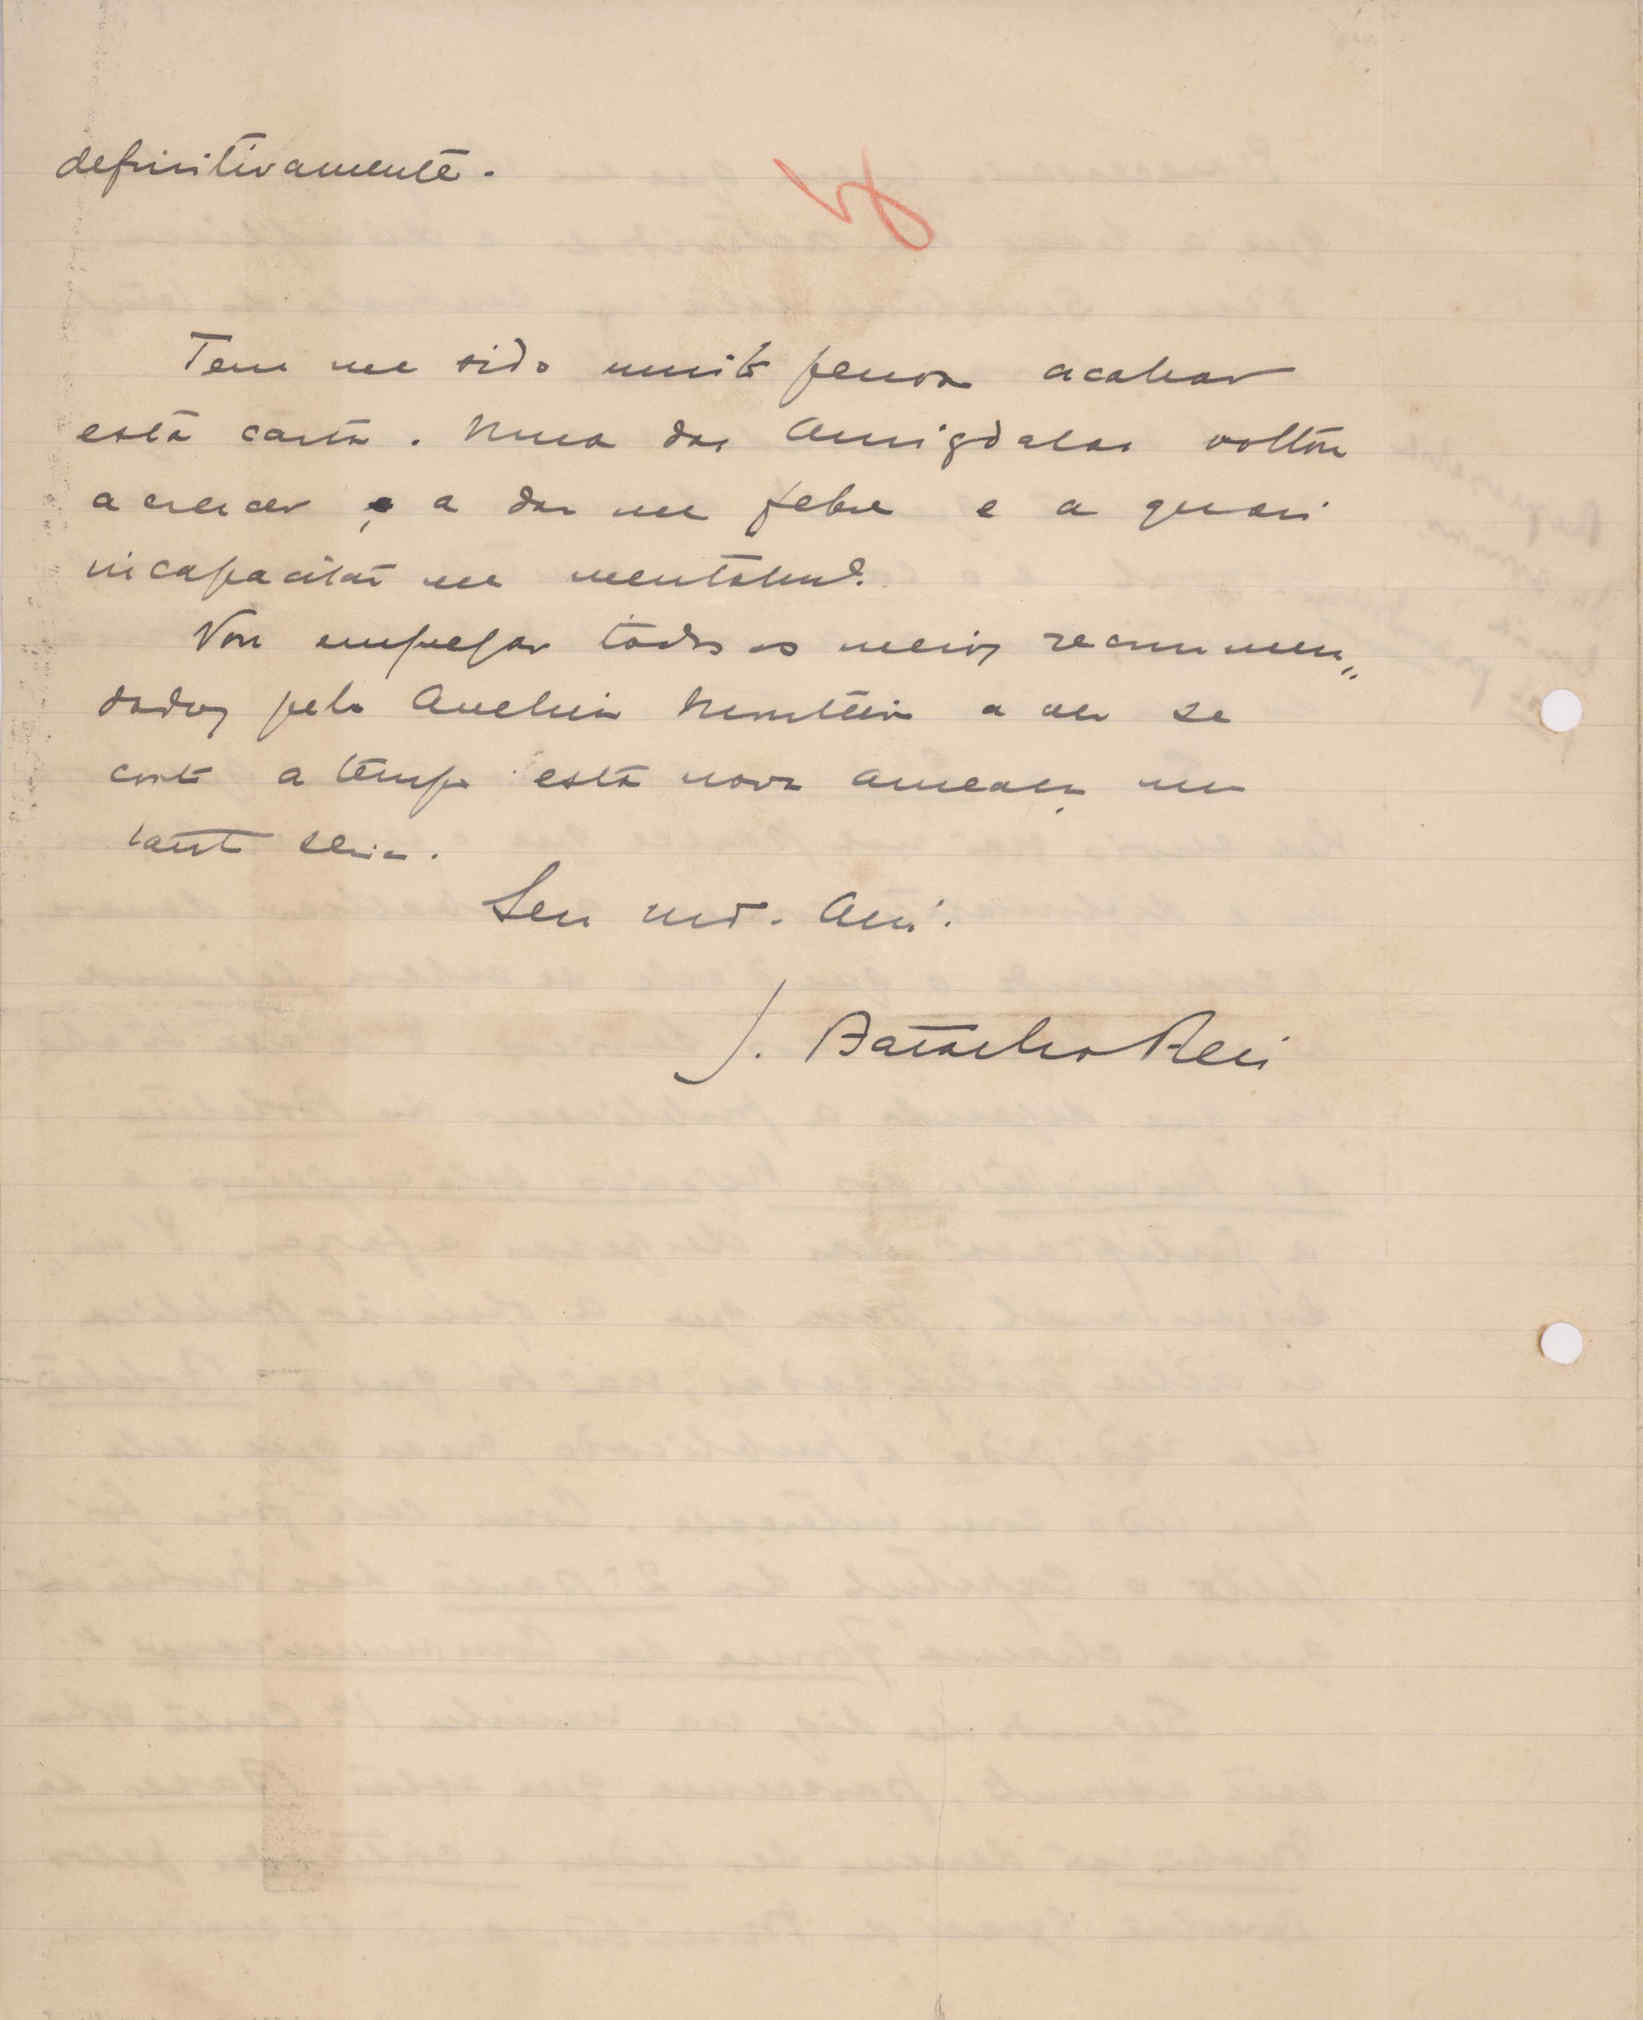 definitivamente.
Tem me sido muito penoso acabar
esta carta. Numa das Amigdalas voltou
a crescer e a dar me febre e a quasi
incapacitar me mentalmte.
Vou empregar todos os meios recommen„
dados pelo Avelino Monteiro a ver se
corto a tempo esta nova ameaça um
tanto séria.
Seu mto. Amº.
J. Batalha Reis